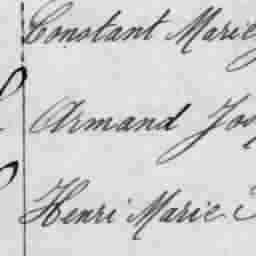 Constant Marie
Armand Jos
Henri Marie